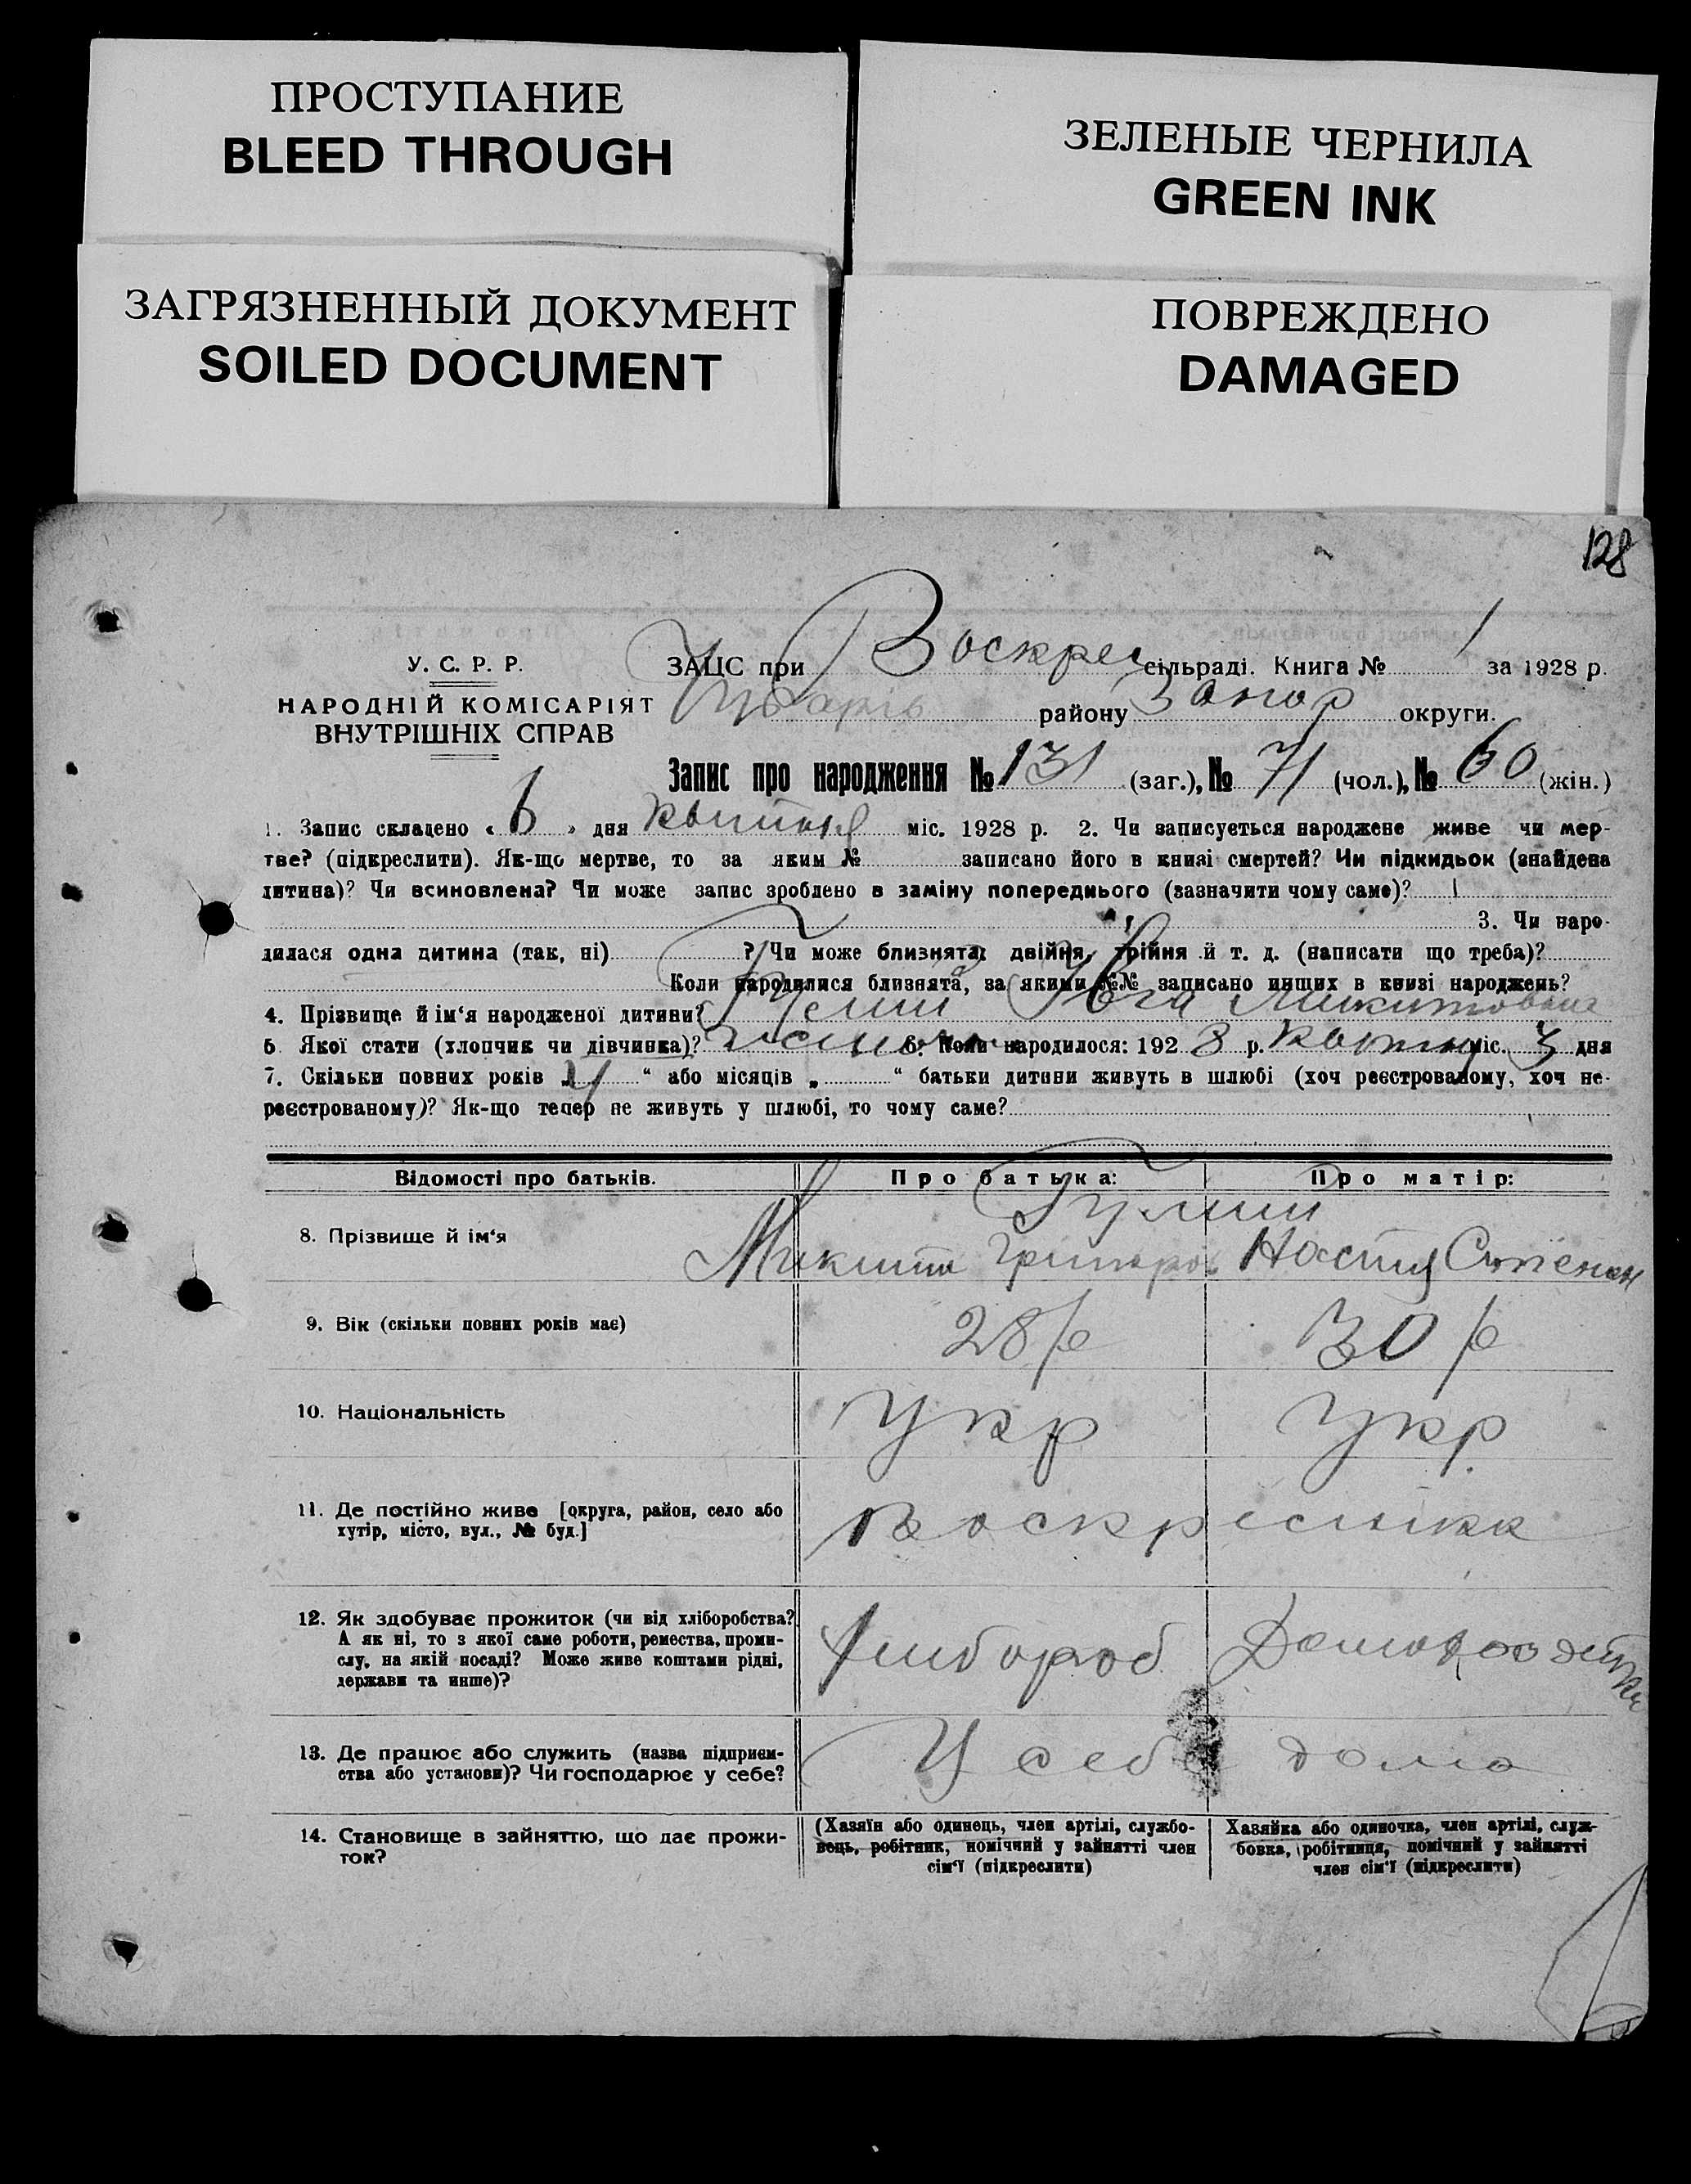 ПРОСТУПАНИЕ
BLEED THROUGH
ЗЕЛЕНЫЕ ЧЕРНИЛА
GREEN INK
ЗАГРЯЗНЕННЫЙ ДОКУМЕНТ
SOILED DOCUMENT
ПОВРЕЖДЕНО
DAMAGED
128
У. С. Р. Р.
НАРОДНІЙ КОМІСАРІЯТ
ВНУТРІШНІХ СПРАВ
ЗАЦС при Воскрес сільраді. Книга № 1 за 1928 р.
району Запор округи.
Запис про народження № 131 (заг.), № 71 (чол.), № 60 (жін.)
1. Запис складено « 6 » дня квітня міс. 1928 р. 2. Чи записується народжене живе чи мер-
тве? (підкреслити). Як-що мертве, то за яким № записано його в книзі смертей? Чи підкидьок (знайдена
дитина)? Чи всиновлена? Чи може запис зроблено в заміну попереднього (зазначити чому саме)?
3. Чи наро-
дилася одна дитина (так, ні) ? Чи може близнята: двійня, трійня й т. д. (написати що треба)?
Коли народилися близнята, за якими №№ записано инших в книзі народжень?
4. Прізвище й ім'я народженої дитини? Гулий Ївга Микитовна
5. Якої стати (хлопчик чи дівчинка)? 6. Коли народилося: 1928 р. квітня міс. 3 дня
7. Скільки повних років „ 4 “ або місяців „ “ батьки дитини живуть в шлюбі (хоч реєстрованому, хоч не-
реєстрованому)? Як-що тепер не живуть у шлюбі, то чому саме?
Відомості про батьків. Про батька: Про матір:
Гулий
8. Прізвище й ім'я Микита Григоров Настя Степан
9. Вік (скільки повних років має) 28 р 30 р
10. Національність Укр Укр
11. Де постійно живе [округа, район, село або
хутір, місто, вул., № буд.]
Воскресенка
12. Як здобуває прожиток (чи від хліборобства?
А як ні, то з якої саме роботи, ремества, проми-
слу, на якій посаді? Може живе коштами рідні,
держави та инше)?
Хлибороб
13. Де працює або служить (назва підприєм-
ства або установи)? Чи господарює у себе?
У себе дома
14. Становище в зайняттю, що дає прожи-
ток?
(Хазяїн або одинець, член артілі, службо-
вець, робітник, помічний у зайнятті член
сім'ї (підкреслити)
Хазяйка або одиночка, член артілі, служ-
бовка, робітниця, помічний у зайнятті
член сім'ї (підкреслити)